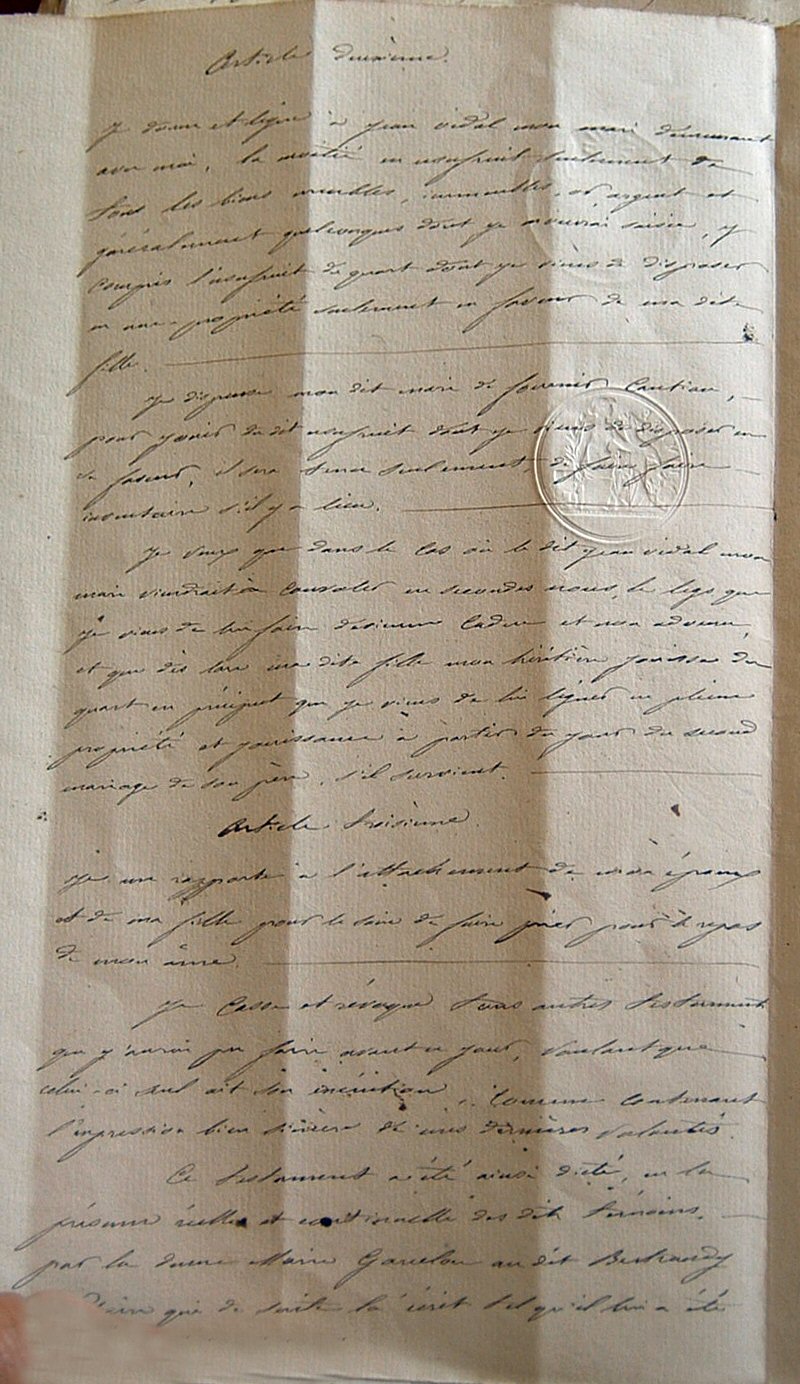 Article deuxième.
Je donne et lègue à Jean Vidal mon mari demeurant
avec moi, la moitié en usufruit seulement de
tous les biens meubles, immeubles, or, argent et
généralement quelconques dont je mourrai saisie, y
compris l'usufruit du quart dont je viens de disposer
en nue-propriété seulement en faveur de ma dite
fille.
Je dispense mon dit mari de fournir caution,
pour jouir du dit usufruit dont je viens de disposer en
sa faveur, il sera tenu seulement de faire faire
inventaire s'il y a lieu.
Je veux que dans le cas où le dit Jean Vidal mon
mari viendrait à convoler en secondes noces, le legs que
je viens de lui faire devienne caduc et non advenu,
et que dès lors ma dite fille mon héritière jouisse du
quart en préciput que je viens de lui léguer en pleine
propriété et jouissance à partir du jour du second
mariage de son père, s'il survient.
Article troisième.
Je me rapporte à l'attachement de mon époux
et de ma fille pour le soin de faire prier pour le repos
de mon âme.
Je casse et révoque tous autres testaments
que j'aurai pu faire avant ce jour, voulant que
celui-ci seul ait son exécution, comme contenant
l'expression bien sincère de mes dernières volontés.
Ce testament a été ainsi dicté, en la
présence réelle et continuelle des dits témoins,
par la dame Marie au dit Bertrandy
que de suite l'a écrit tel qu'il lui a été